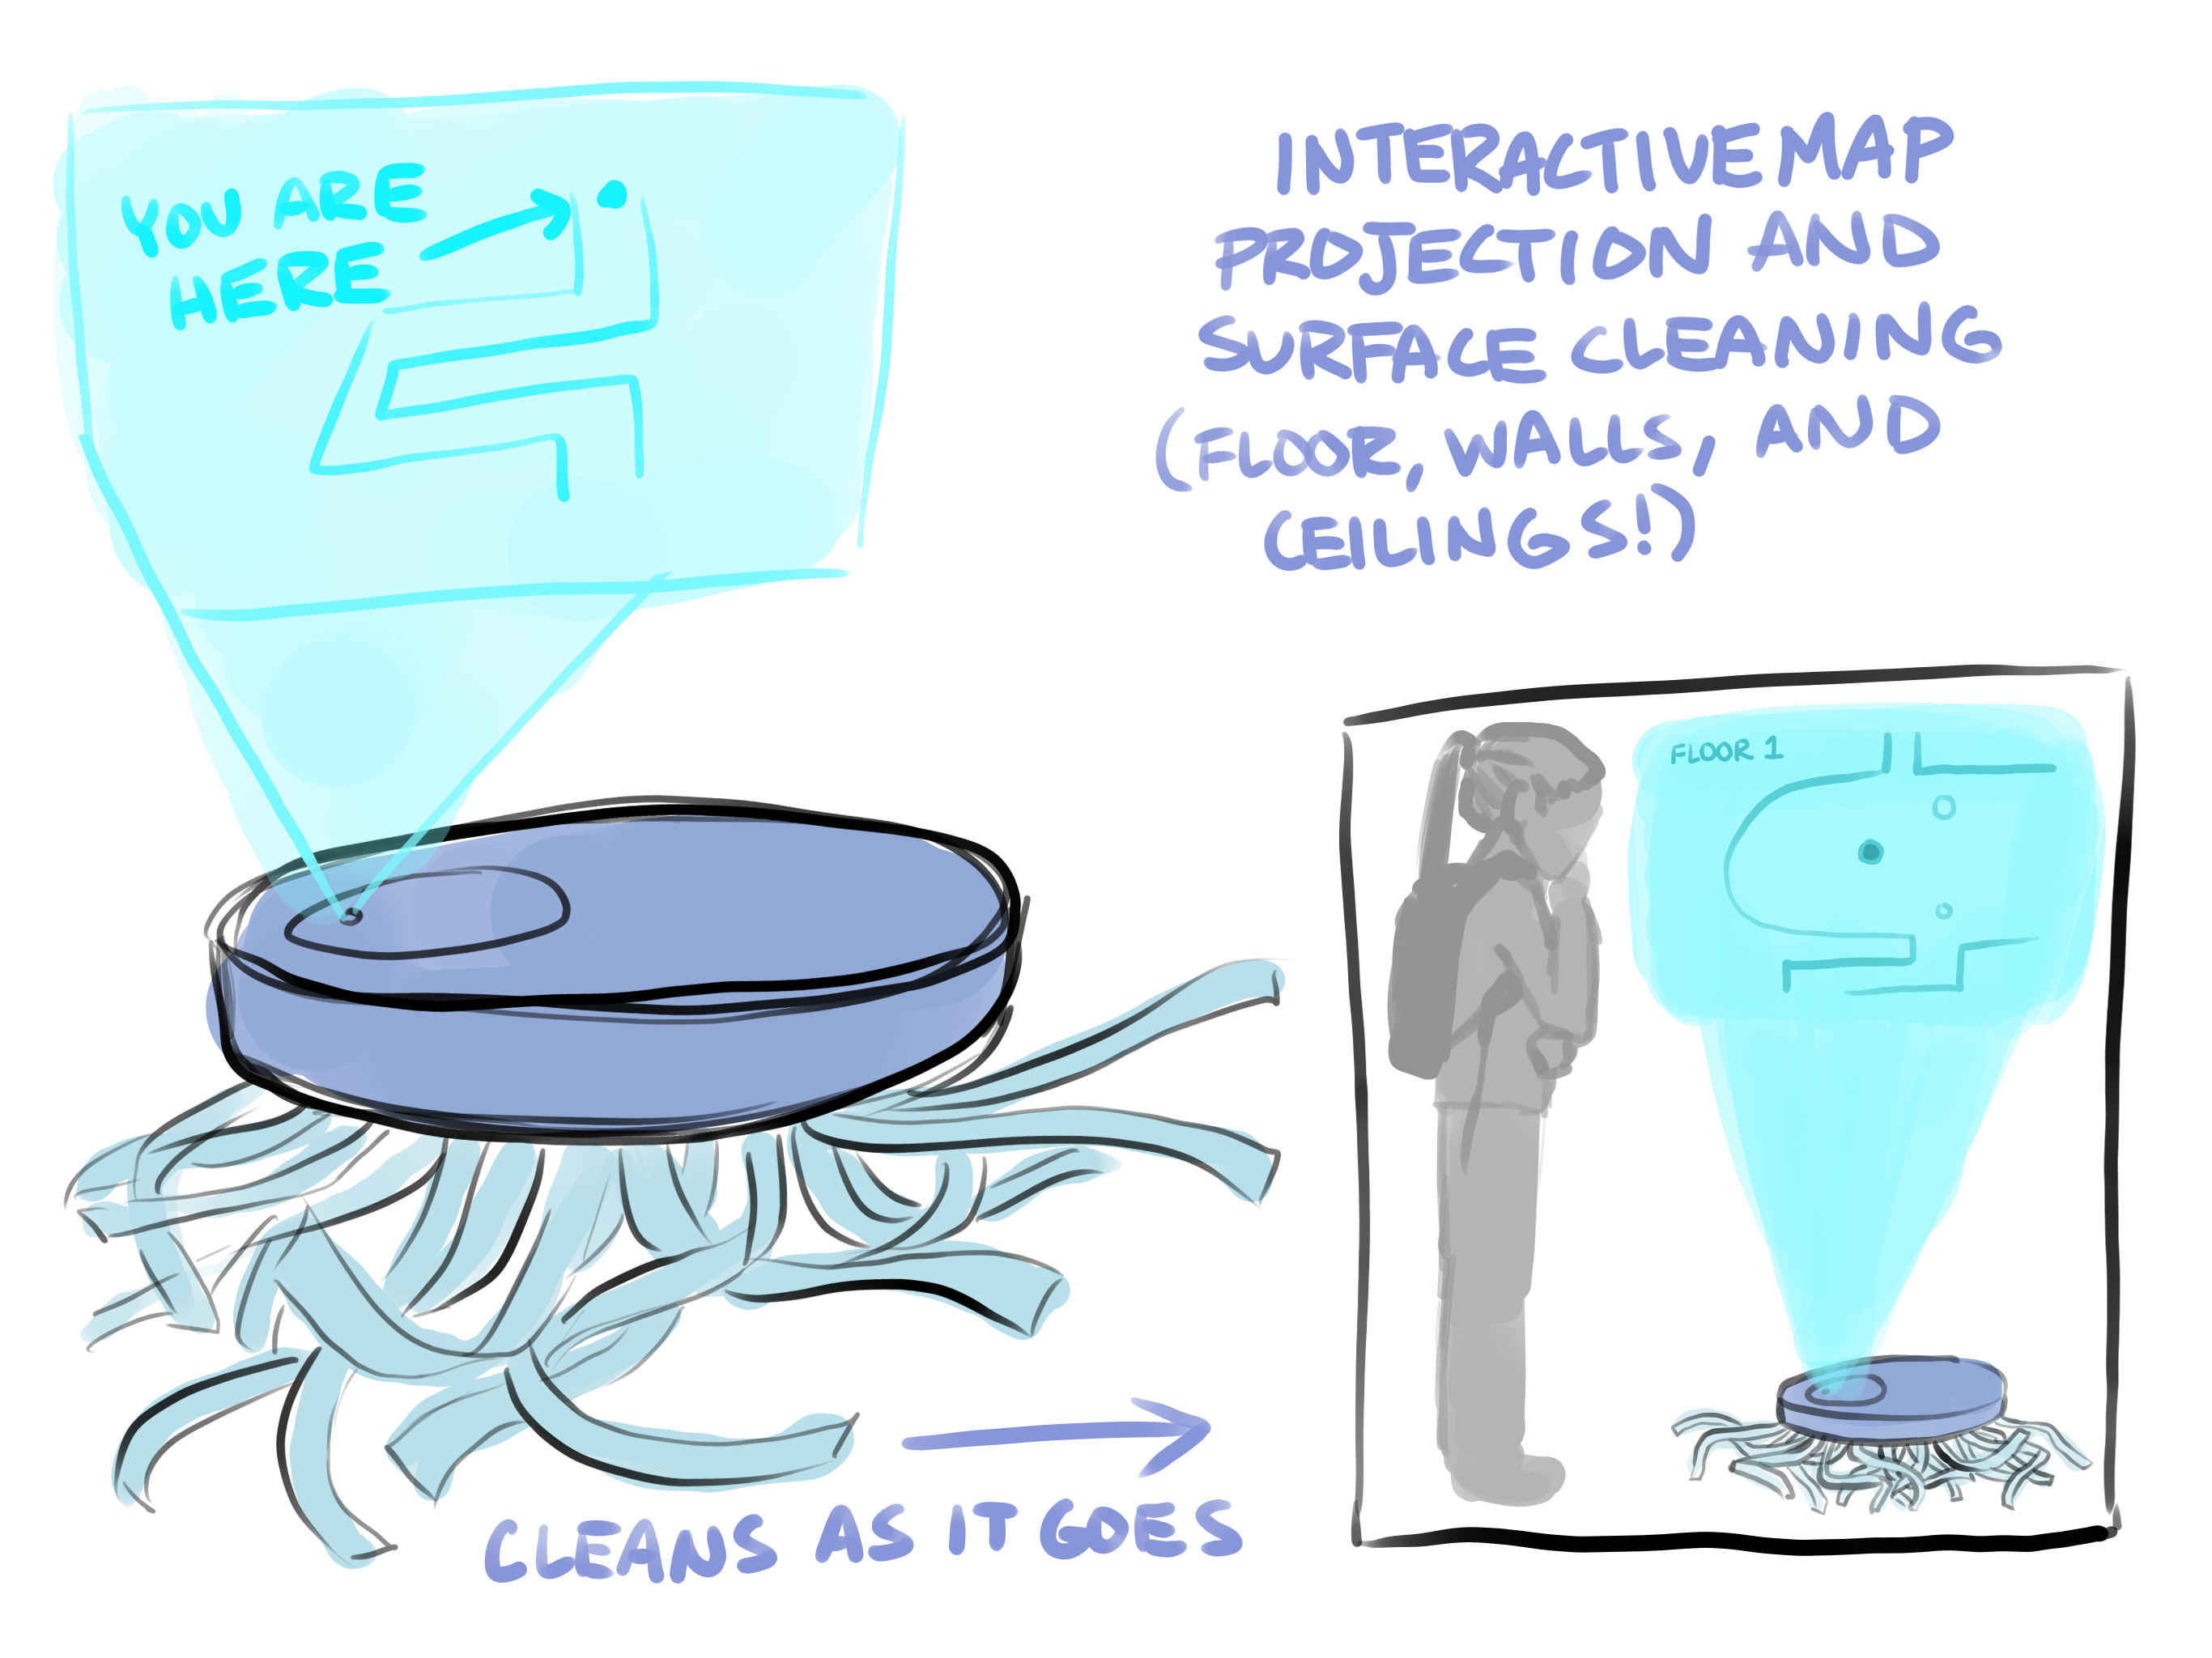 YOU ARE
HERE
INTERACTIVE MAP
PROJECTION AND
SURFACE CLEANING
(FLOOR, WALLS, AND
CEILINGS!)
FLOOR 1
CLEANS AS IT GOES